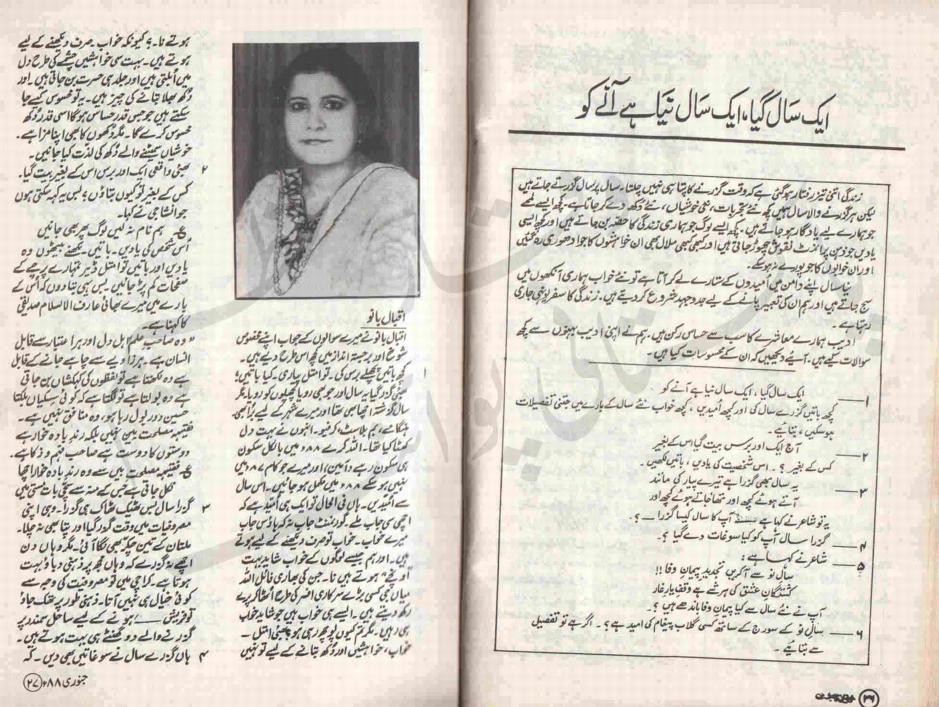 ایک سال گیا، ایک سال نیا ہے آنے کو
زندگی اتنی تیز رفتار ہوگئی ہے کہ وقت گزرنے کا پتا ہی نہیں چلتا۔ سال پر سال گزرتے جاتے ہیں
لیکن ہر گزرنے والا سال ہمیں کچھ نئے تجربات، نئی خوشیاں، نئے دکھ دے کر جاتا ہے۔ کچھ ایسے لمحے
جو ہمارے لیے یادگار ہو جاتے ہیں، کچھ ایسے لوگ جو ہماری زندگی کا حصہ بن جاتے ہیں اور کچھ ایسی
یادیں جو ذہن پر انمٹ نقوش چھوڑ جاتی ہیں اور کبھی کبھی ملال بھی ان خواہشوں کا جو ادھوری رہ گئیں
اور ان خوابوں کا جو پورے نہ ہو سکے۔
نیا سال اپنے دامن میں امیدوں کے ستارے لے کر آتا ہے تو نئے خواب ہماری آنکھوں میں
سج جاتے ہیں اور ہم ان کی تعبیر پانے کے لیے جدوجہد شروع کر دیتے ہیں۔ زندگی کا سفر یونہی جاری
رہتا ہے۔
ادیب ہمارے معاشرے کا سب سے حساس رکن ہیں۔ ہم نے اپنی ادیب بہنوں سے کچھ
سوالات کیے ہیں۔ آئیے دیکھیں کہ ان کے محسوسات کیا ہیں۔
۱— ایک سال گیا، ایک سال نیا ہے آنے کو
کچھ باتیں گزرے سال کی اور کچھ امیدیں، کچھ خواب نئے سال کے بارے میں جتنی تفصیلات
ہو سکیں، بتائیے۔
۲— آج ایک اور برس بیت گیا اس کے بغیر
کس کے بغیر؟۔ اس شخصیت کی یادیں، باتیں لکھیں۔
۳— یہ سال بھی گزرا ہے تیرے پیار کی مانند
آتے ہوئے کچھ اور تھا جاتے ہوئے کچھ اور
یہ تو شاعر نے کہا ہے آپ کا سال کیسا گزرا—؟۔
۴— گزرا سال آپ کو کیا سوغات دے گیا؟۔
۵— شاعر نے کہا ہے:
سال نو سے آ کریں تجدید پیمان وفا!!
کشتگان عشق کی ہر شے ہے وقف یار غار
آپ نے نئے سال سے کیا پیمان وفا باندھے ہیں؟۔
۶— سال نو کے سورج کے ساتھ کسی گلاب پیغام کی امید ہے؟۔ اگر ہے تو تفصیل
سے بتائیے۔
۲۶
اقبال بانو
اقبال بانو نے میرے سوالوں کے جواب اپنے مخصوص
شوخ اور برجستہ انداز میں کچھ اس طرح دیے ہیں۔
۱ کچھ باتیں پچھلے برس کی۔ تو امتل پیاری۔ کیا باتیں؛
سال گزشتہ؛ اچھا ہی تھا۔ ویسے شہر کے لیے بڑا ہی
ہنگامے، بم بلاسٹ، کرفیو۔ انہوں نے بہت دل
کھٹا کیا تھا۔ اللہ کرے ۸۸ء میں بالکل سکون
ہی سکون رہے (آمین) اور میرے جو کام ۸۷ء میں
نہیں ہو سکے ۸۸ء میں مکمل ہو جائیں۔ اس سال
سے امیدیں۔ ہاں فی الحال تو ایک ہی امید ہے کہ
اچھی سی جاب ملے۔ گورنمنٹ جاب نہ کہ ہاؤس جاب
میرے خواب۔ خواب تو صرف دیکھنے کے لیے ہوتے
ہیں۔ اور ہم جیسے لوگوں کے خواب شاید بہت
اونچے ہوتے ہیں نا۔ جن کی بھاری فائل اللہ
میاں جی کسی بڑے سرکاری افسر کی طرح اٹھا کر پرے
رکھ دیتے ہیں۔ ایسے ہی خواب ہیں جو شاید خواب
ہی رہیں۔ مگر تم کیوں پوچھ رہی ہو چیتی امتل۔
خواب، خواہشیں اور دکھ بتانے کے لیے تو نہیں
ہوتے نا۔؟ کیونکہ خواب صرف دیکھنے کے لیے
ہوتے ہیں۔ بہت سی خواہشیں چشمے کی طرح دل
میں ابلتی ہیں اور جلد ہی حسرت بن جاتی ہیں۔ اور
دکھ بھلا بتانے کی چیز ہیں۔ یہ تو محسوس کیے جا
سکتے ہیں جو جس قدر حساس ہوگا اسی قدر دکھ
محسوس کرے گا۔ مگر دکھوں کا بھی اپنا مزا ہے۔
خوشیاں سمیٹنے والے دکھ کی لذت کیا جانیں۔
۲ بھئی واقعی ایک اور برس اس کے بغیر بیت گیا۔
کس کے بغیر تو کیوں بتاؤں؛ بس یہ کہہ سکتی ہوں
جو انشا جی نے کہا۔
ہم نام نہ لیں لوگ مگر بھی جانیں
اس شخص کی یادیں۔ باتیں لکھنے بیٹھوں وہ
یادیں اور باتیں تو امتل ڈیئر تمہارے پرچے کے
صفحات کم پڑ جائیں۔ بس یہی بتا دوں کہ اس کے
بارے میں میرے بھائی عارف الاسلام صدیقی
کا کہنا ہے۔
"وہ صاحب علم، اہل دل اور ہر اعتبار سے قابل
انسان ہے۔ ہر زاویے سے چاہے جانے کے قابل
ہے وہ لکھتا ہے تو لفظوں کی کہکشاں بن جاتی
ہے وہ بولتا ہے تو لگتا ہے کہ کوئی سسکیاں بلکتا
حسین دور بول رہا ہو، وہ منافق نہیں ہے۔
فقیہہ مصلحت بین نہیں بلکہ رند بادہ خوار ہے
دوستوں کا دوست ہے صاحب فہم و ذکا ہے۔
فقیہہ مصلحت بیں سے وہ رند بادہ خوار اچھا
نکل جاتی ہے جس کے منہ سے سچی بات مستی میں
۳ گزرا سال بس ٹھیک ٹھاک ہی گزرا۔ وہی اپنی
مصروفیات میں وقت گزر گیا اور پتا بھی نہ چلا۔
ملتان کے تین چکر بھی لگا آئی۔ مگر وہاں دن
اچھے نہ گزرے کہ وہاں مجھ پر ذہنی دباؤ بہت
ہوتا ہے۔ کراچی میں تو مصروفیت کی وجہ سے
کوئی خیال ہی نہیں آتا۔ ذہنی طور پر تھک جاؤ
تو فریش— ہونے کے لیے ساحل سمندر پر
گزرنے والے دو گھنٹے ہی بہت ہوتے ہیں۔
۴ ہاں گزرے سال نے سوغاتیں بھی دیں۔ کہ
جنوری ۸۸ء ۲۷